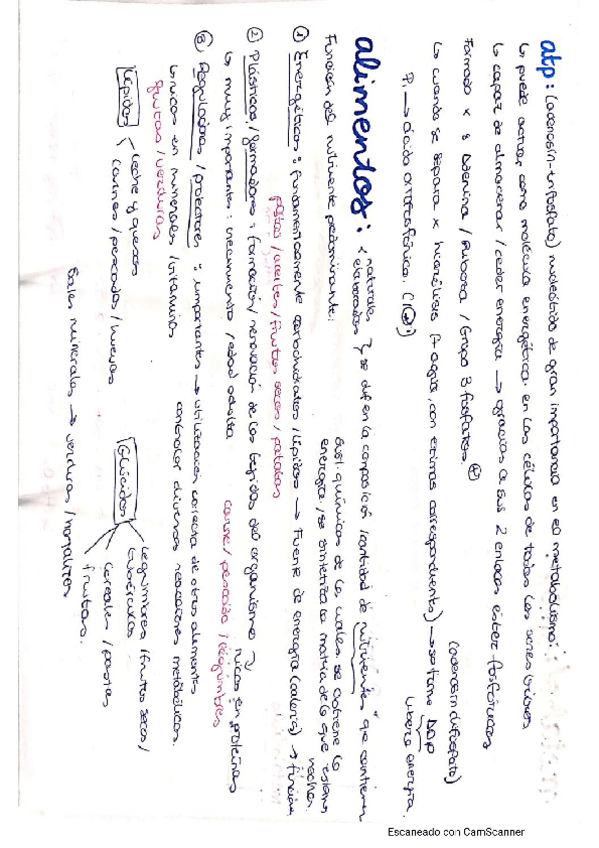 atp: (adenosin-trifosfato) nucleótido de gran importancia en el metabolismo:
↳ puede actuar como molécula energética en las células de todos los seres vivos
↳ capaz de almacenar/ceder energía → gracias a sus 2 enlaces éster fosfóricos
Formado x: Adenina / Ribosa / Grupo 3 fosfatos.
(adenosin difosfato)
↳ cuando se separa x hidrólisis (+ agua, con enzimas correspondients) → se tiene ADP
libera energía.
Pi → ácido ortofosfórico.
alimentos: naturales
elaborados
se dif en la composición / cantidad de "nutrientes" que contienen
sust químicas de la cuales se obtiene la
energía / se sintetiza la matria de la que están
hechos
Función del nutriente predominante:
① Energéticos: fundamentalmente carbohidratos / lípidos → Fuente de energía (caloría) → función
pastas / aceites / frutos secos / patatas
② Plásticos / formadores: formación / renovación de los tejidos del organismo
ricos en proteínas
↳ muy importantes: crecimiento / edad adulta
carne / pescado / legumbres
③ Reguladores / protectores: importantes → utilización correcta de otros alimentos
controlar diversas reacciones metabólicas.
↳ ricos en minerales / vitaminas
frutas / verduras
Lípidos
Leche y quesos
carnes / pescados / huevos
Glúcidos
Legumbres / frutos secos /
tubérculos
cereales / pastas
frutas.
Sales minerales → verduras / hortalizas
Escaneado con CamScanner